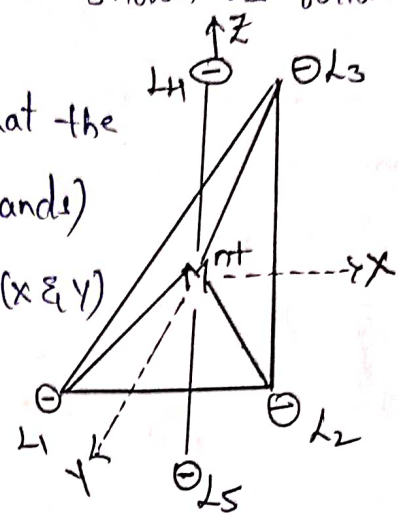 Z
L4 ⊖ ⊖ L3
at the
ands)
M n+
X
(X & Y)
⊖ ⊖
L1 L2
Y
⊖ L5